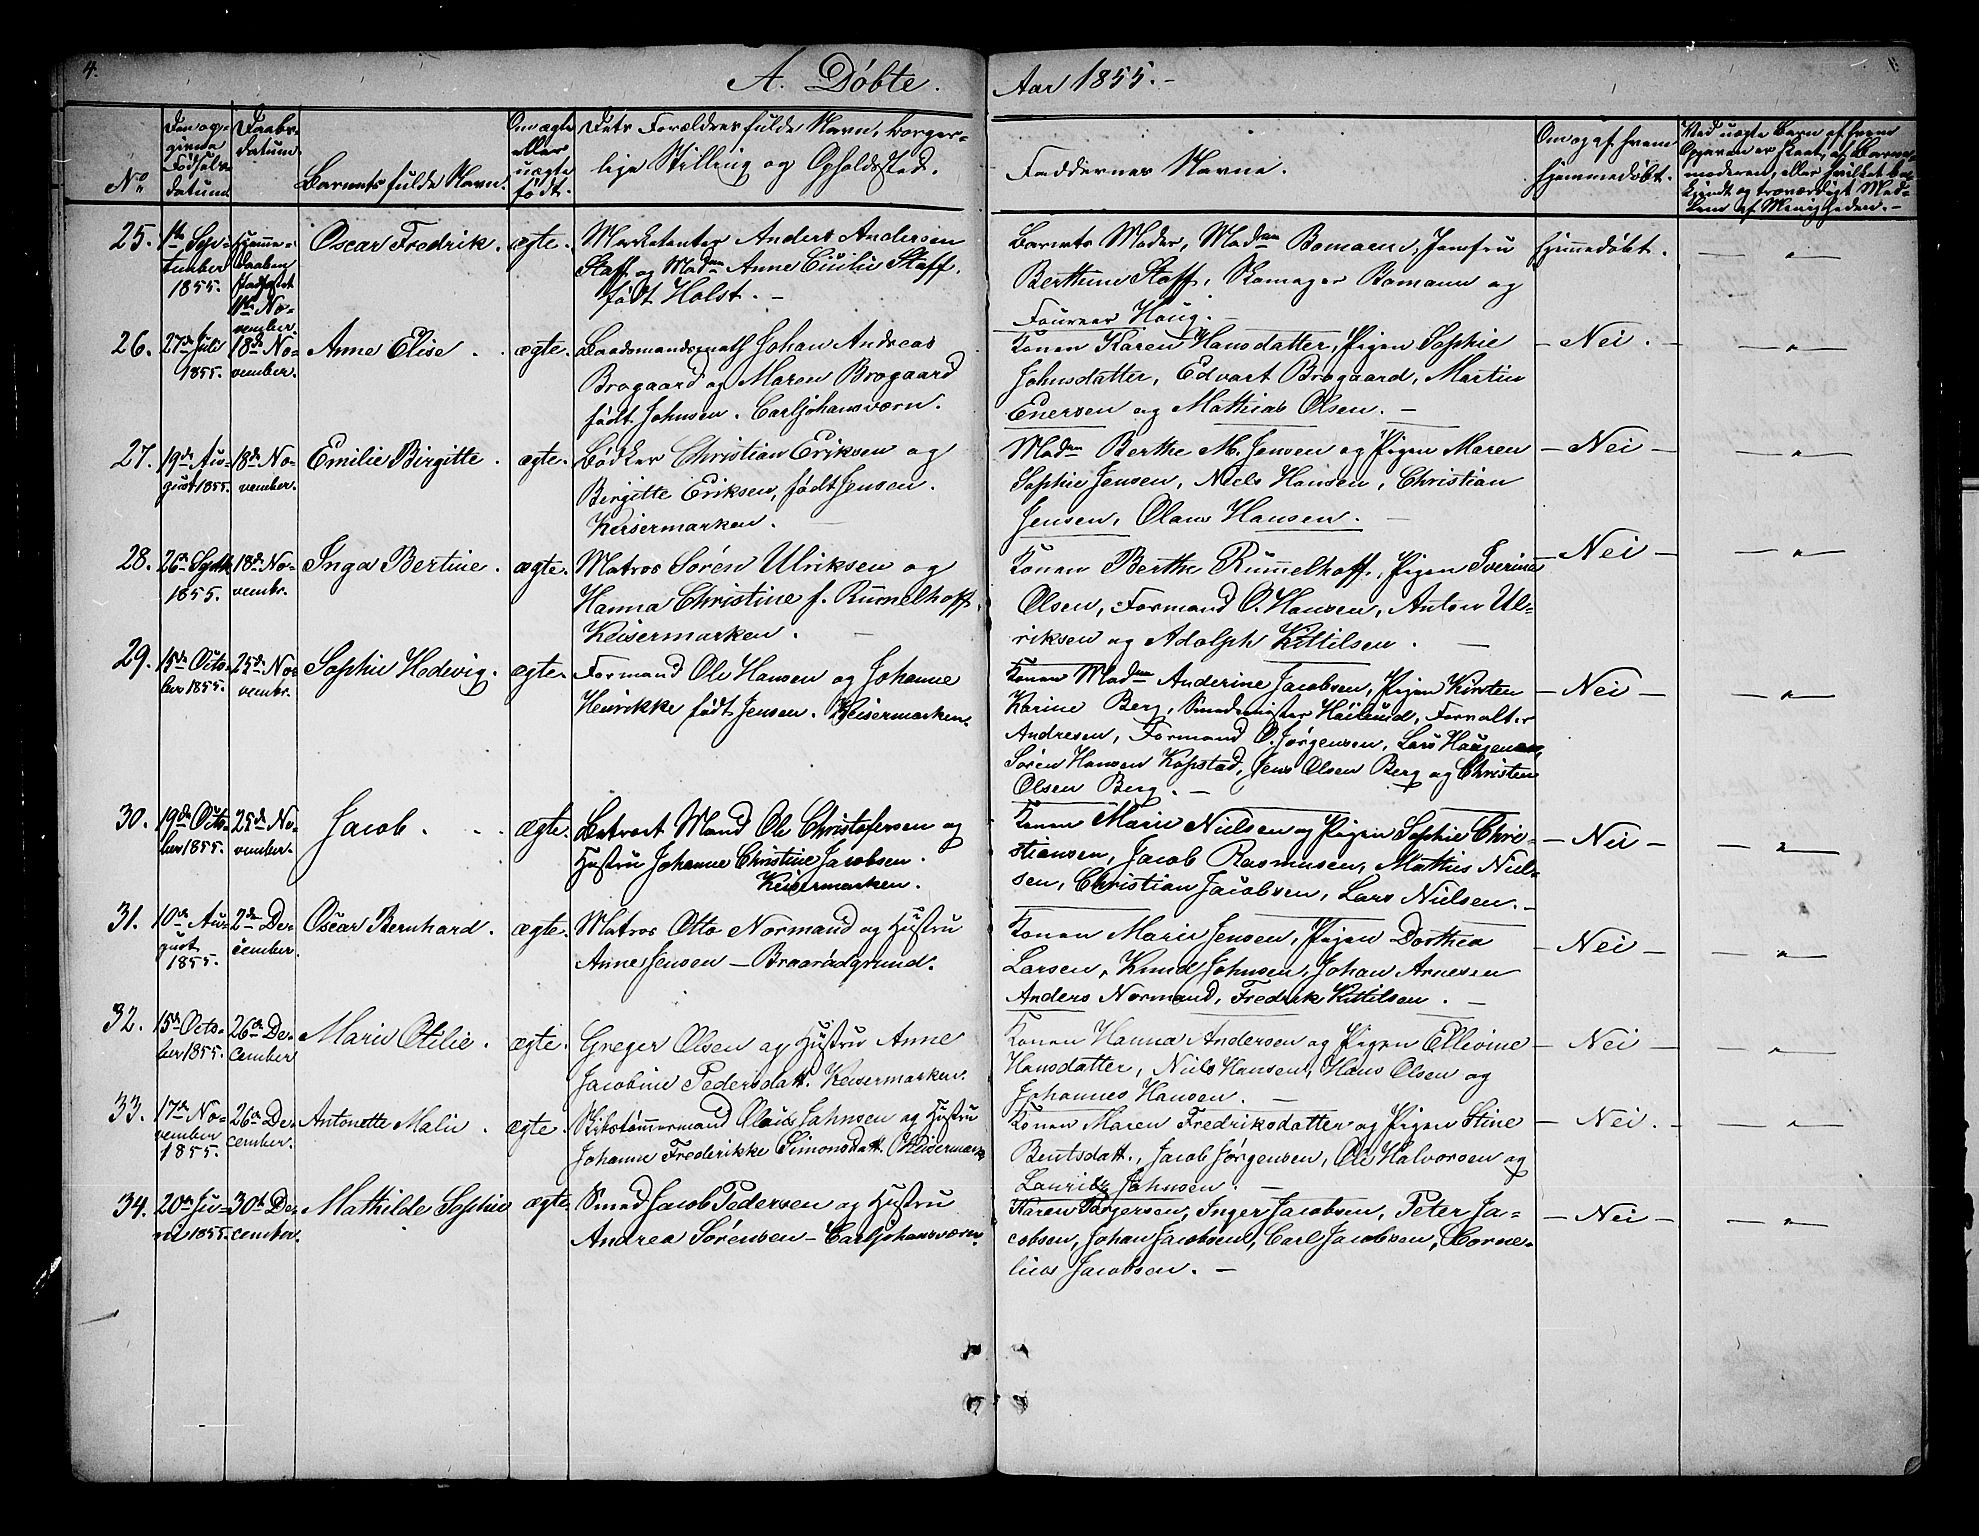 4.
A. Döbte. Aar 1855.-
No
Den op-
givne
Födsels-
datum
Daabs-
datum.
Barnets fulde Navn.
Om ægte
eller
uægte
födt.
Dets Forældres fulde Navn, borger-
lige Stilling og Opholdssted.
Faddernes Navne.
Om og af hvem
hjemmedöbt.
Ved uægte Barn af hvem
Opgaven er skeet, af Barne-
moderen, eller hvilket be-
kjendt og troværdigt Med-
lem af Menigheden.-
25. 1ste Sep-
tember
1855.
Hjemme-
daaben
stadfæstet
11te No-
vember.
Oscar Fredrik. ægte.
Marketenter Anders Andersen
Staff og Madam Anne Cicilie Staff,
födt Holst. -
Barnets Moder, Madam Bomann, Jomfru
Berthine Staff, Skomager Bomann og
Fourner Houg.
Hjemmedöbt. — " —
26. 27de Juli
1855.
18de No-
vember.
Anne Elise. ægte.
Baadsmandsmath Johan Andreas
Brogaard og Maren Brogaard
födt Johnsen. Carljohansværn.
Konen Karen Hansdatter, Pigen Sophie
Johnsdatter, Edvart Brogaard, Martin
Enersen og Mathias Olsen. —
— Nei. — — " —
27. 19de Au-
gust 1855.
18de No-
vember.
Emilie Birgitte. ægte.
Bödker Christian Eriksen og
Birgitte Eriksen, födt Jensen.
Keisermarken. —
Madam Berthe M. Jensen og Pigen Maren
Sophie Jensen, Niels Hansen, Christian
Jensen, Olaus Hansen. —
— Nei — — " —
28. 26de Septb.
1855.
18de No-
vembr.
Inga Bertine. ægte.
Matros Sören Ulriksen og
Hanna Christine f. Rummelhoff,
Keisermarken. —
Konen Berthe Rummelhoff, Pigen Sverine
Olsen, Formand O. Hansen, Anton Ul-
riksen og Adolph Kittilsen. —
— Nei — — " —
29. 15de Octo-
ber 1855.
25de No-
vembr.
Sophie Hedevig. ægte.
Formand Ole Hansen og Johanne
Henrikke födt Jensen. Keisermarken.
Konen Madam Anderine Jacobsen, Pigen Kirsten
Karine Berg, Smedemester Höilund, Forvalter
Andresen, Formand O. Jörgensen, Lars Haugen,
Sören Hansen Kopstad, Jens Olsen Berg og Christen
Olsen Berg. —
— Nei — — " —
30. 19de Octo-
ber 1855.
25de No-
vember.
Jacob. ægte.
Extraet Mand Ole Christofersen og
Hustru Johanne Christine Jacobsen.
Keisermarken.
Konen Marie Nielsen og Pigen Sophie Chri-
stiansen, Jacob Rasmusen, Mathies Niel-
sen, Christian Jacobsen, Lars Nielsen. -
— Nei — — " —
31. 10de Au-
gust
1855.
2den De-
cember.
Oscar Bernhard. ægte.
Matros Otto Normand og Hustru
Anne Jensen — Braarödgrund.
Konen Marie Jensen, Pigen Dorthea
Larsen, Knud Johnsen, Johan Arnesen
Anders Normand, Fredrik Kittilsen. —
— Nei — — " —
32. 15de Octo-
ber 1855.
26de De-
cember
Marie Otilie. ægte.
Greger Olsen og Hustru Anne
Jacobine Pedersdatt. Keisermarken.
Konen Hanna Andersen og Pigen Ellevine
Hansdatter, Niels Hansen, Hans Olsen og
Johannes Hansen. —
— Nei — — " —
33. 17de No-
vember
1855.
26de De-
cember.
Antonette Malie. ægte.
Skibstömmermand Olaus Johnsen og Hustru
Johanne Frederikke Simonsdatt. Keisermark.
Konen Maren Fredriksdatter og Pigen Stine
Bentsdatt., Jacob Jörgensen, Ole Halvorsen og
Lauritz Johnsen. —
— Nei. — — " —
34. 20de Ju-
ni 1855.
30te De-
cember.
Mathilde Sophie ægte.
Smed Jacob Pedersen og Hustru
Andrea Sörensen — Carljohansværn.
Karen Torgersen, Inger Jacobsen, Peter Ja-
cobsen, Johan Jacobsen, Carl Jacobsen, Corne-
lius Jacobsen. —
— Nei — — " —